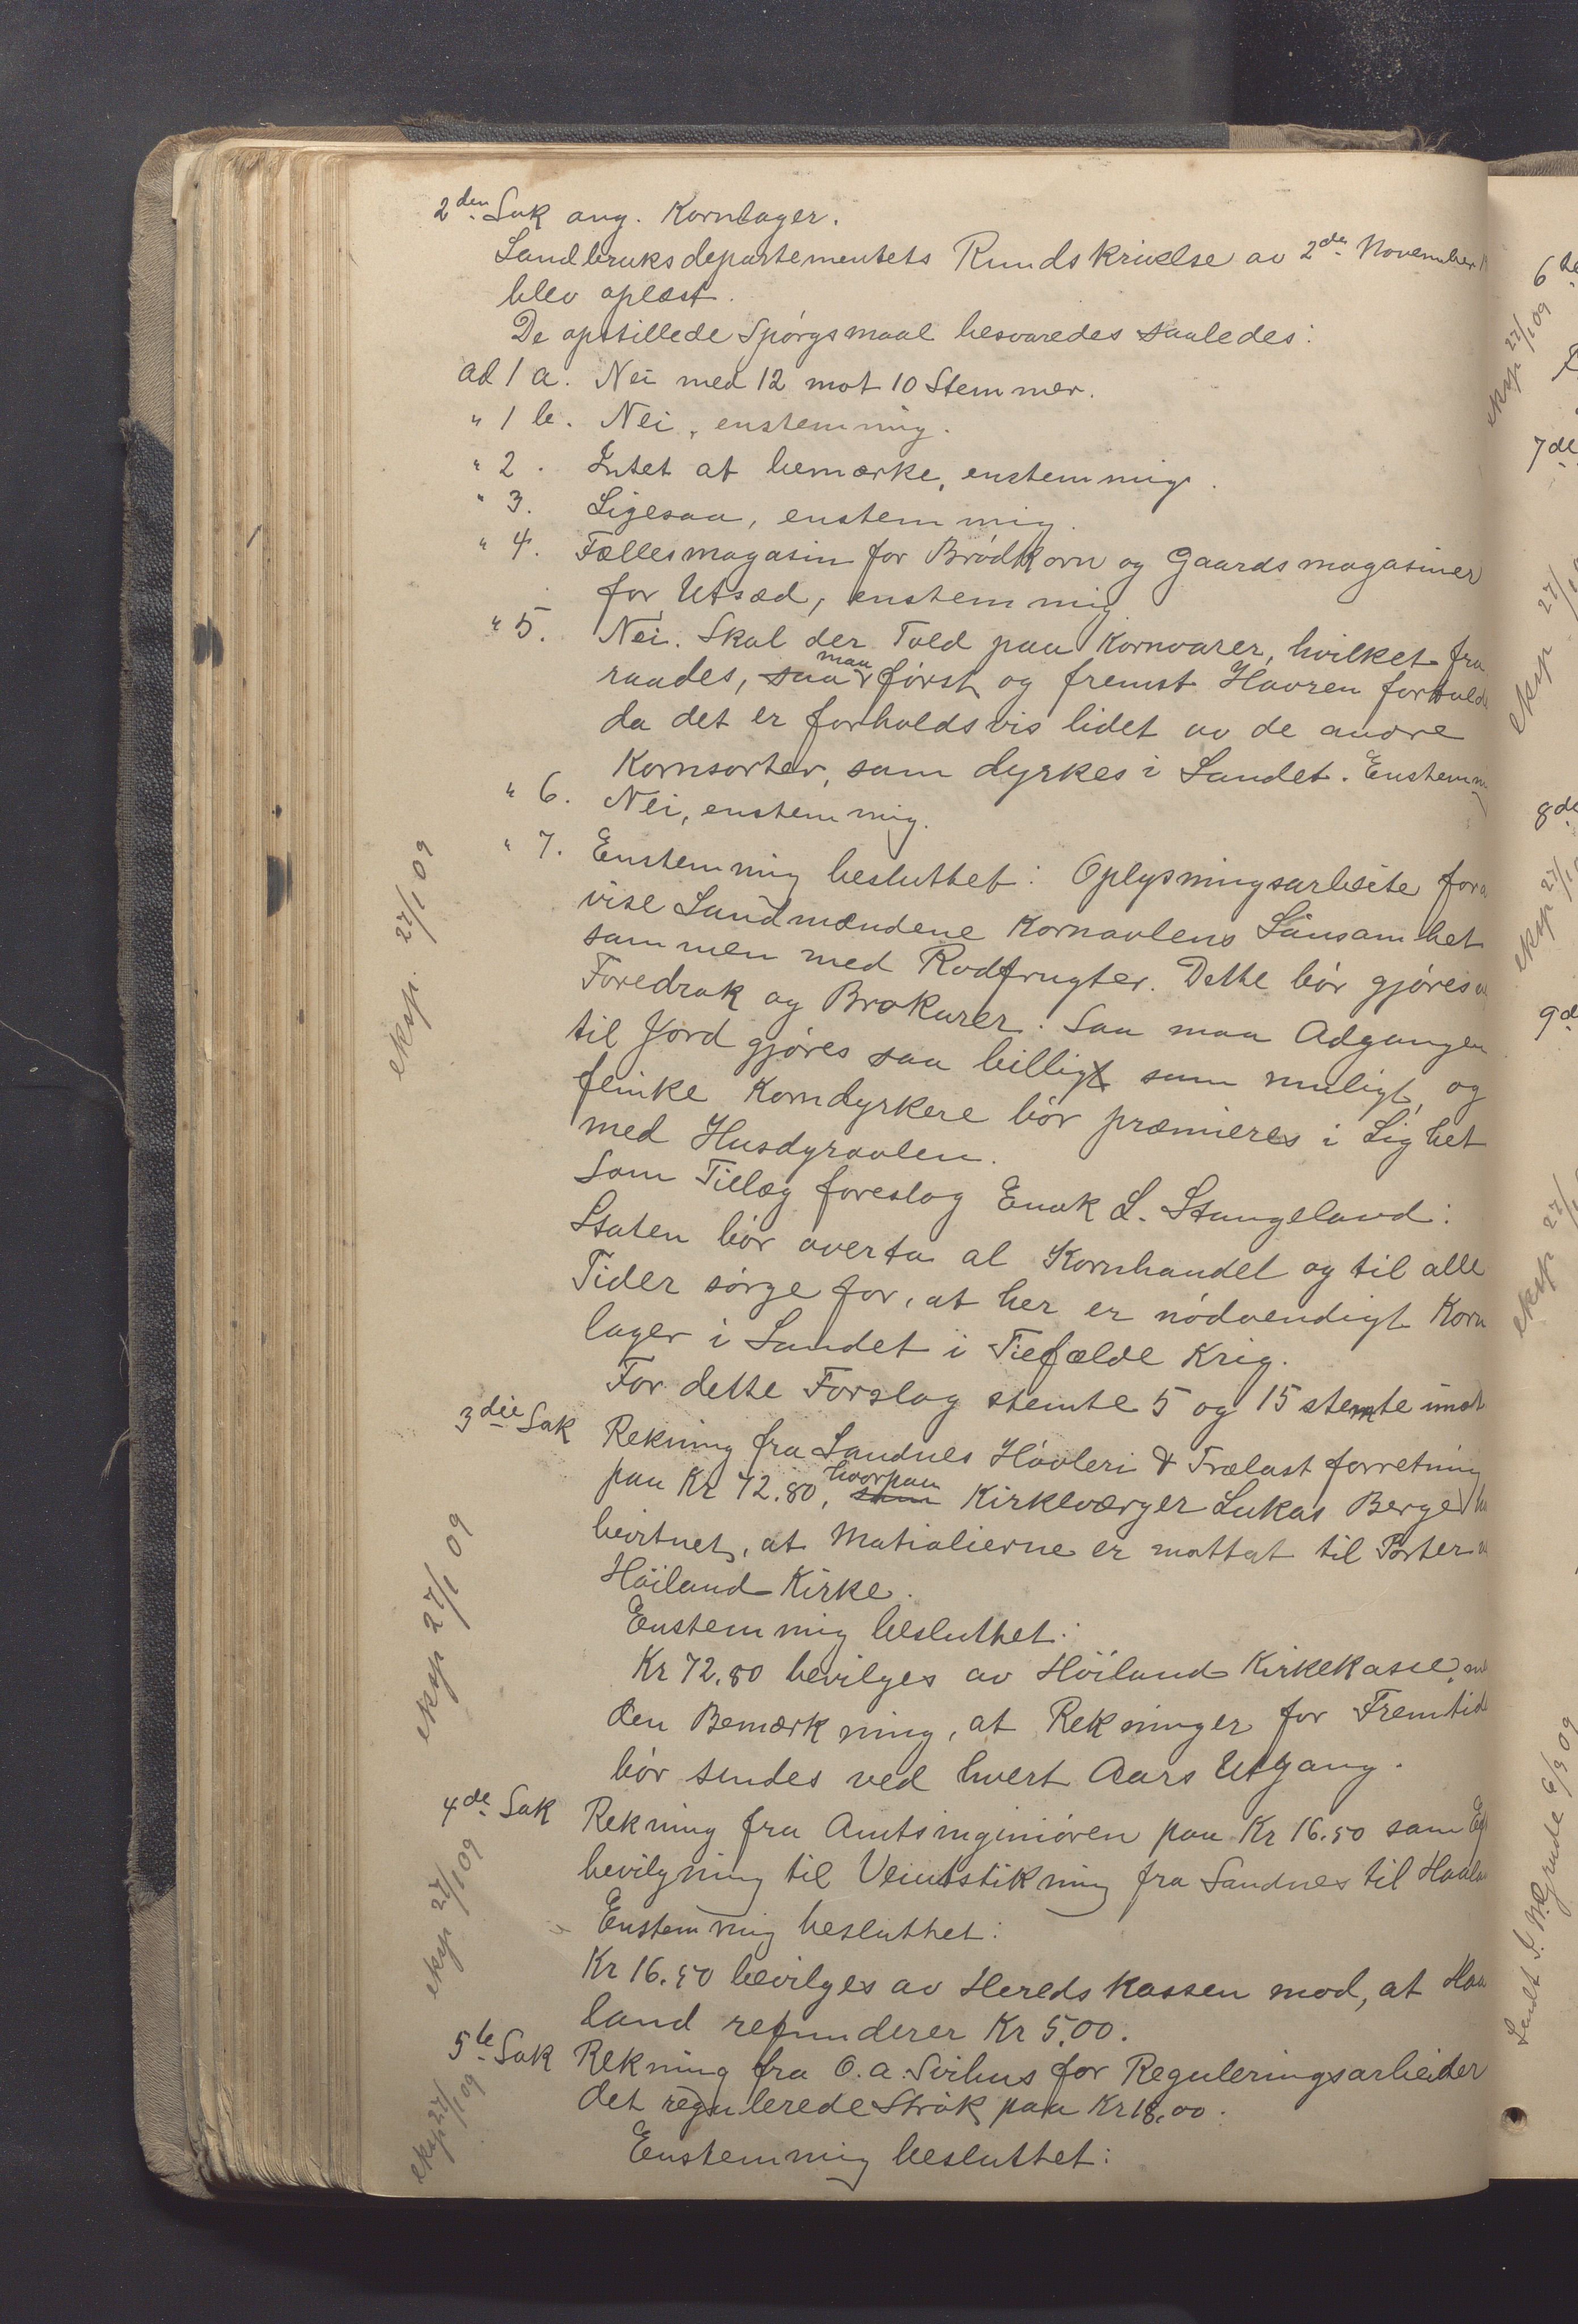 2den Sak ang. Kornlager.
Landbruksdepartementets Rundskrivelse av 2den November
blev oplæst.
De opstillede Spörgsmaal besvaredes saaledes:
ad 1 a. Nei med 12 mot 10 Stemmer.
" 1 b. Nei, enstemmig.
" 2. Intet at bemærke, enstemmig.
" 3. Ligesaa, enstemmig.
" 4. Fællesmagasin for Brödkorn og Gaardsmagasiner
for Utsæd, enstemmig
" 5. Nei. Skal der Told paa Kornvarer, hvilket fra
raades, saa maa först og fremst Havren fortolde
da det er forholdsvis lidet av de andre
Kornsorter, som dyrkes i Landet. Enstemm
" 6. Nei, enstemmig.
" 7. Enstemmig besluttet: Oplysningsarbeite for a
vise Landmændene Kornavlens Lönsomhet
sammen med Rodfrugter. Dette bör gjöres
Foredrak og Brokurer. Saa maa Adgangen
til Jord gjöres saa billigt som muligt, og
flinke Korndyrkere bör præmieres i Lighet
med Husdyravlen.
Som Tillæg foreslog Enok L. Stangeland:
Staten bör overta al Kornhandel og til alle
Tider sörge for, at her er nödvendigt Korn
lager i Landet i Tilfælde Krig.
For dette Forslag stemte 5 og 15 stemte imot
3die Sak Rekning fra Sandnes Hövleri & Trælast forretning
paa Kr 72.80, som hvorpaa Kirkeværger Lukas Berge
bevitnet, at Matialierne er mottat til Porter
Höiland Kirke.
Enstemmig besluttet:
Kr 72.80 bevilges av Höiland Kirkekasse,
den Bemærkning, at Rekninger for Fremtid
bör sendes ved hvert Aars Utgang.
4de Sak Rekning fra Amtsingeniören paa Kr 16.50 som
bevilgning til Veiutstikning fra Sandnes til Haala
Enstemmig besluttet:
Kr 16.50 bevilges av Heredskassen mod, at Haa
land refunderer Kr 5.00.
5te Sak Rekning fra O. A. Sirhus for Reguleringsarbeider
det regulerede Strök paa Kr 18.00.
Enstemmig besluttet:
eksp. 27/1 09
eksp 27/1 09
eksp 27/1 09
eksp 27/1 09
6te
eksp 27/1 09
7de
eksp 27/
8de
eksp 27/1
9d
eksp 27/
6/3 09